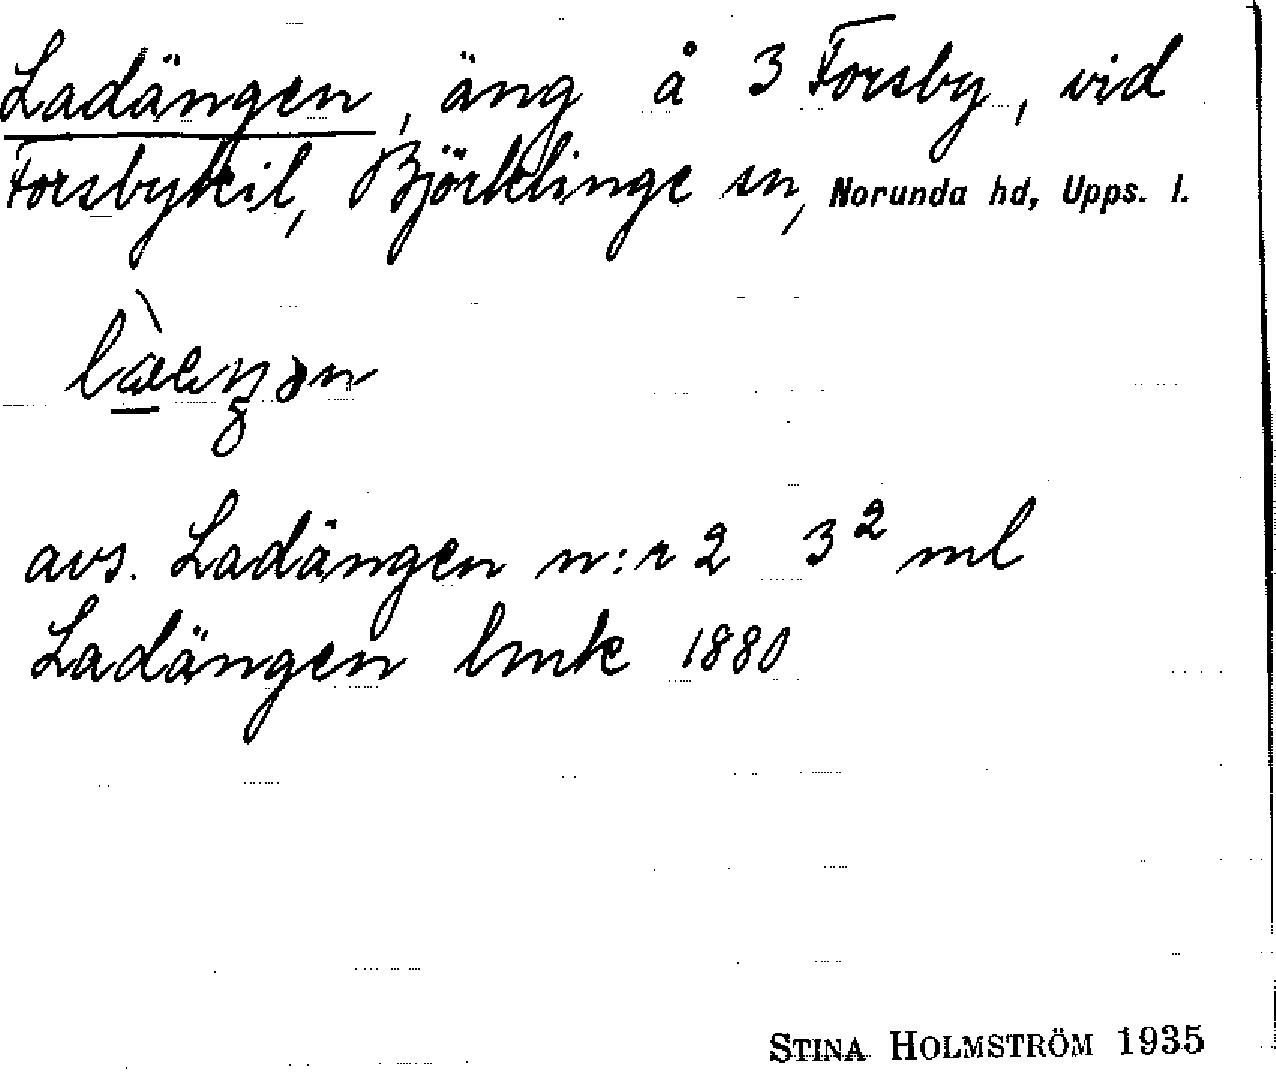 Ladängen, äng å 3 Forsby, vid
Forsbykil, Björklinge sn, Norunda hd, Upps. l.
avs. Ladängen n:r 2 3² ml
Ladängen lmk 1880
STINA HOLMSTRÖM 1935